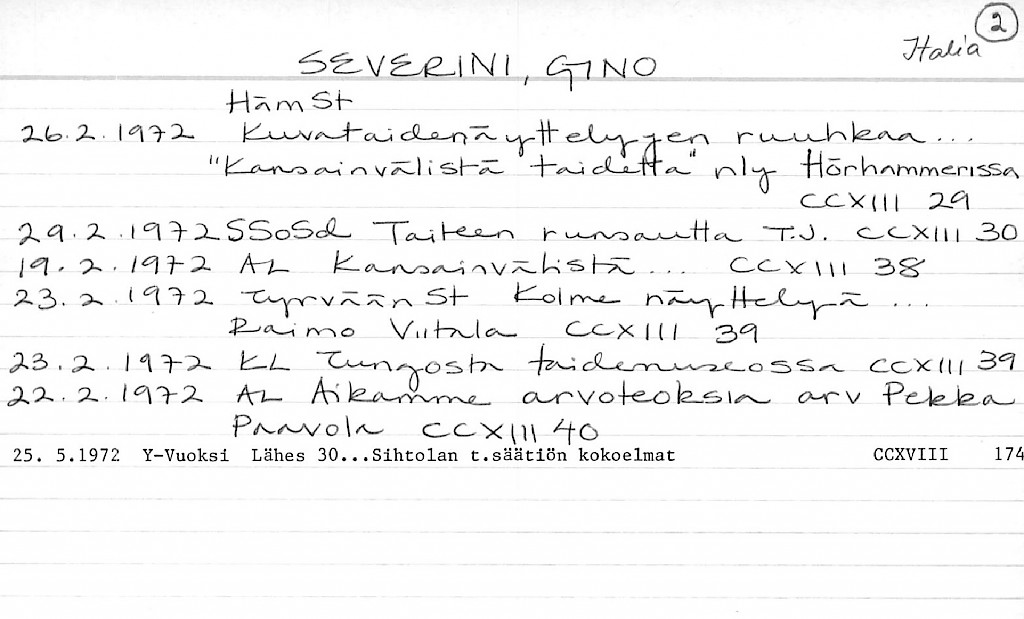 2
Italia
SEVERINI, GINO
HämSt
26.2.1972 Kuvataidenäyttelyjen ruuhkaa...
"Kansainvälistä taidetta" nly Hörhammerissa
CCXIII 29
29.2.1972 SSoSd Taiteen runsautta T.J. CCXIII 30
19.2.1972 AL Kansainvälistä... CCXIII 38
23.2.1972 TyrväänSt Kolme näyttelyä...
Raimo Viitala CCXIII 39
23.2.1972 KL Tungosta taidemuseossa CCXIII 39
22.2.1972 AL Aikamme arvoteoksia arv Pekka
Paavola CCXIII 40
25. 5.1972 Y-Vuoksi Lähes 30...Sihtolan t.säätiön kokoelmat CCXVIII 174